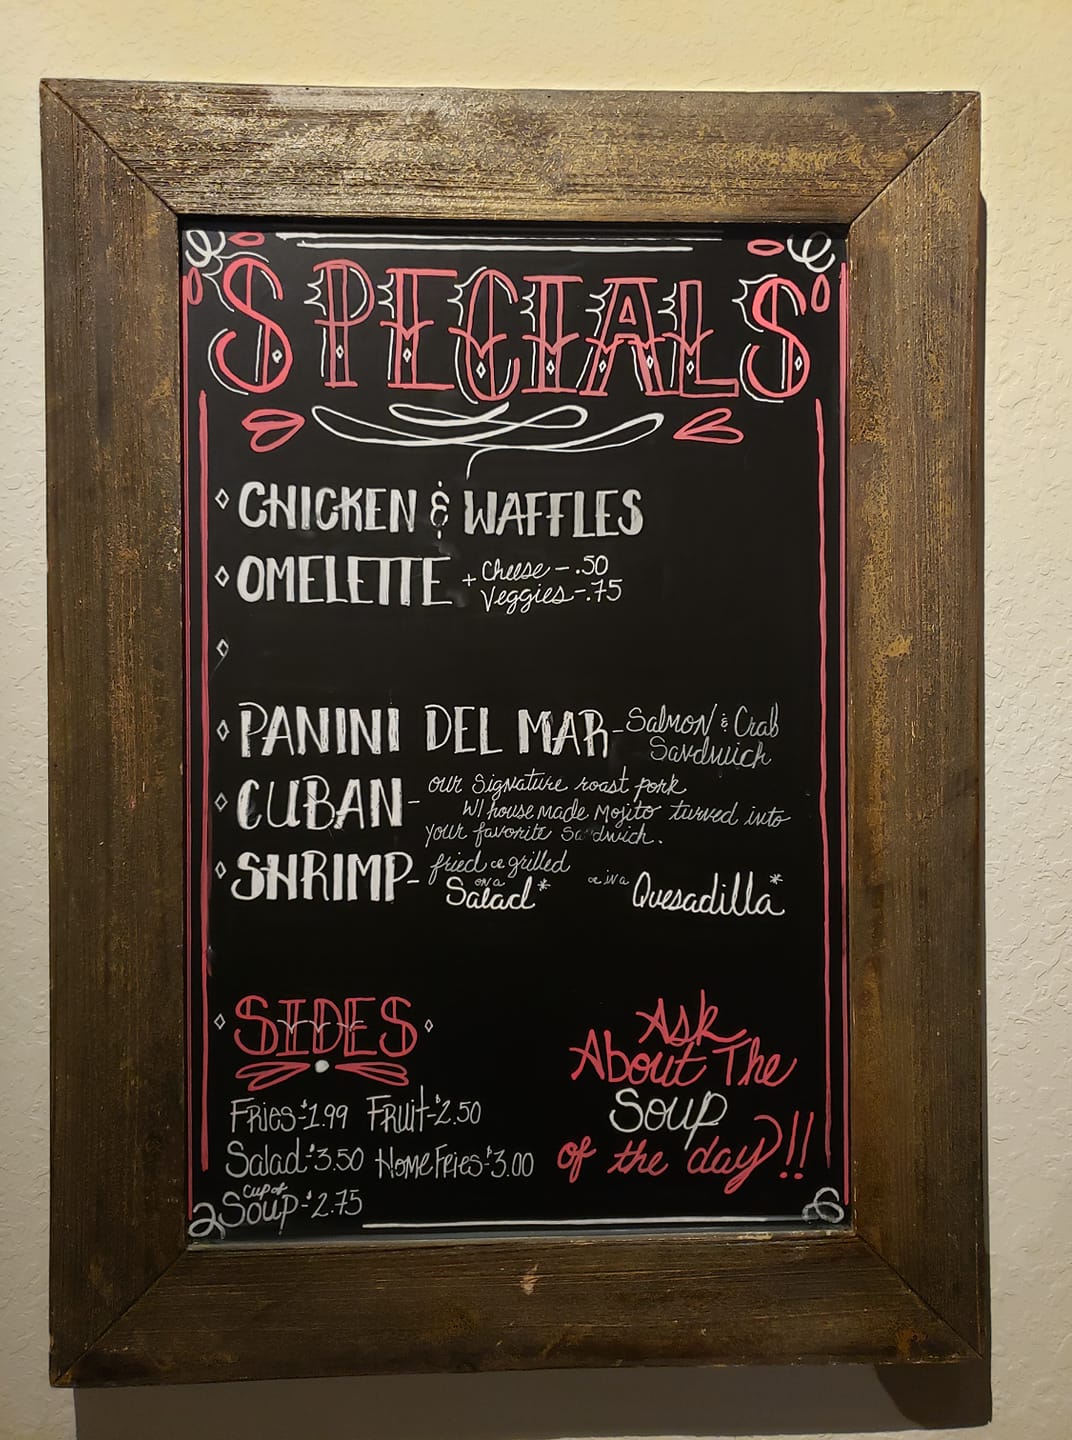 SPECIALS
CHICKEN & WAFFLES
OMELETTE + Cheese - .50
Veggies - .75
PANINI DEL MAR - Salmon & Crab
Sandwich
CUBAN - our signature roast pork
W/ house made Mojito turned into
your favorite Sandwich.
SHRIMP - fried or grilled
on a Salad* or in a Quesadilla*
SIDES
Fries - $1.99 Fruit - $2.50
Salad - $3.50 Home Fries - $3.00
Cup of
Soup - $2.75
Ask
About The
Soup
of the day!!